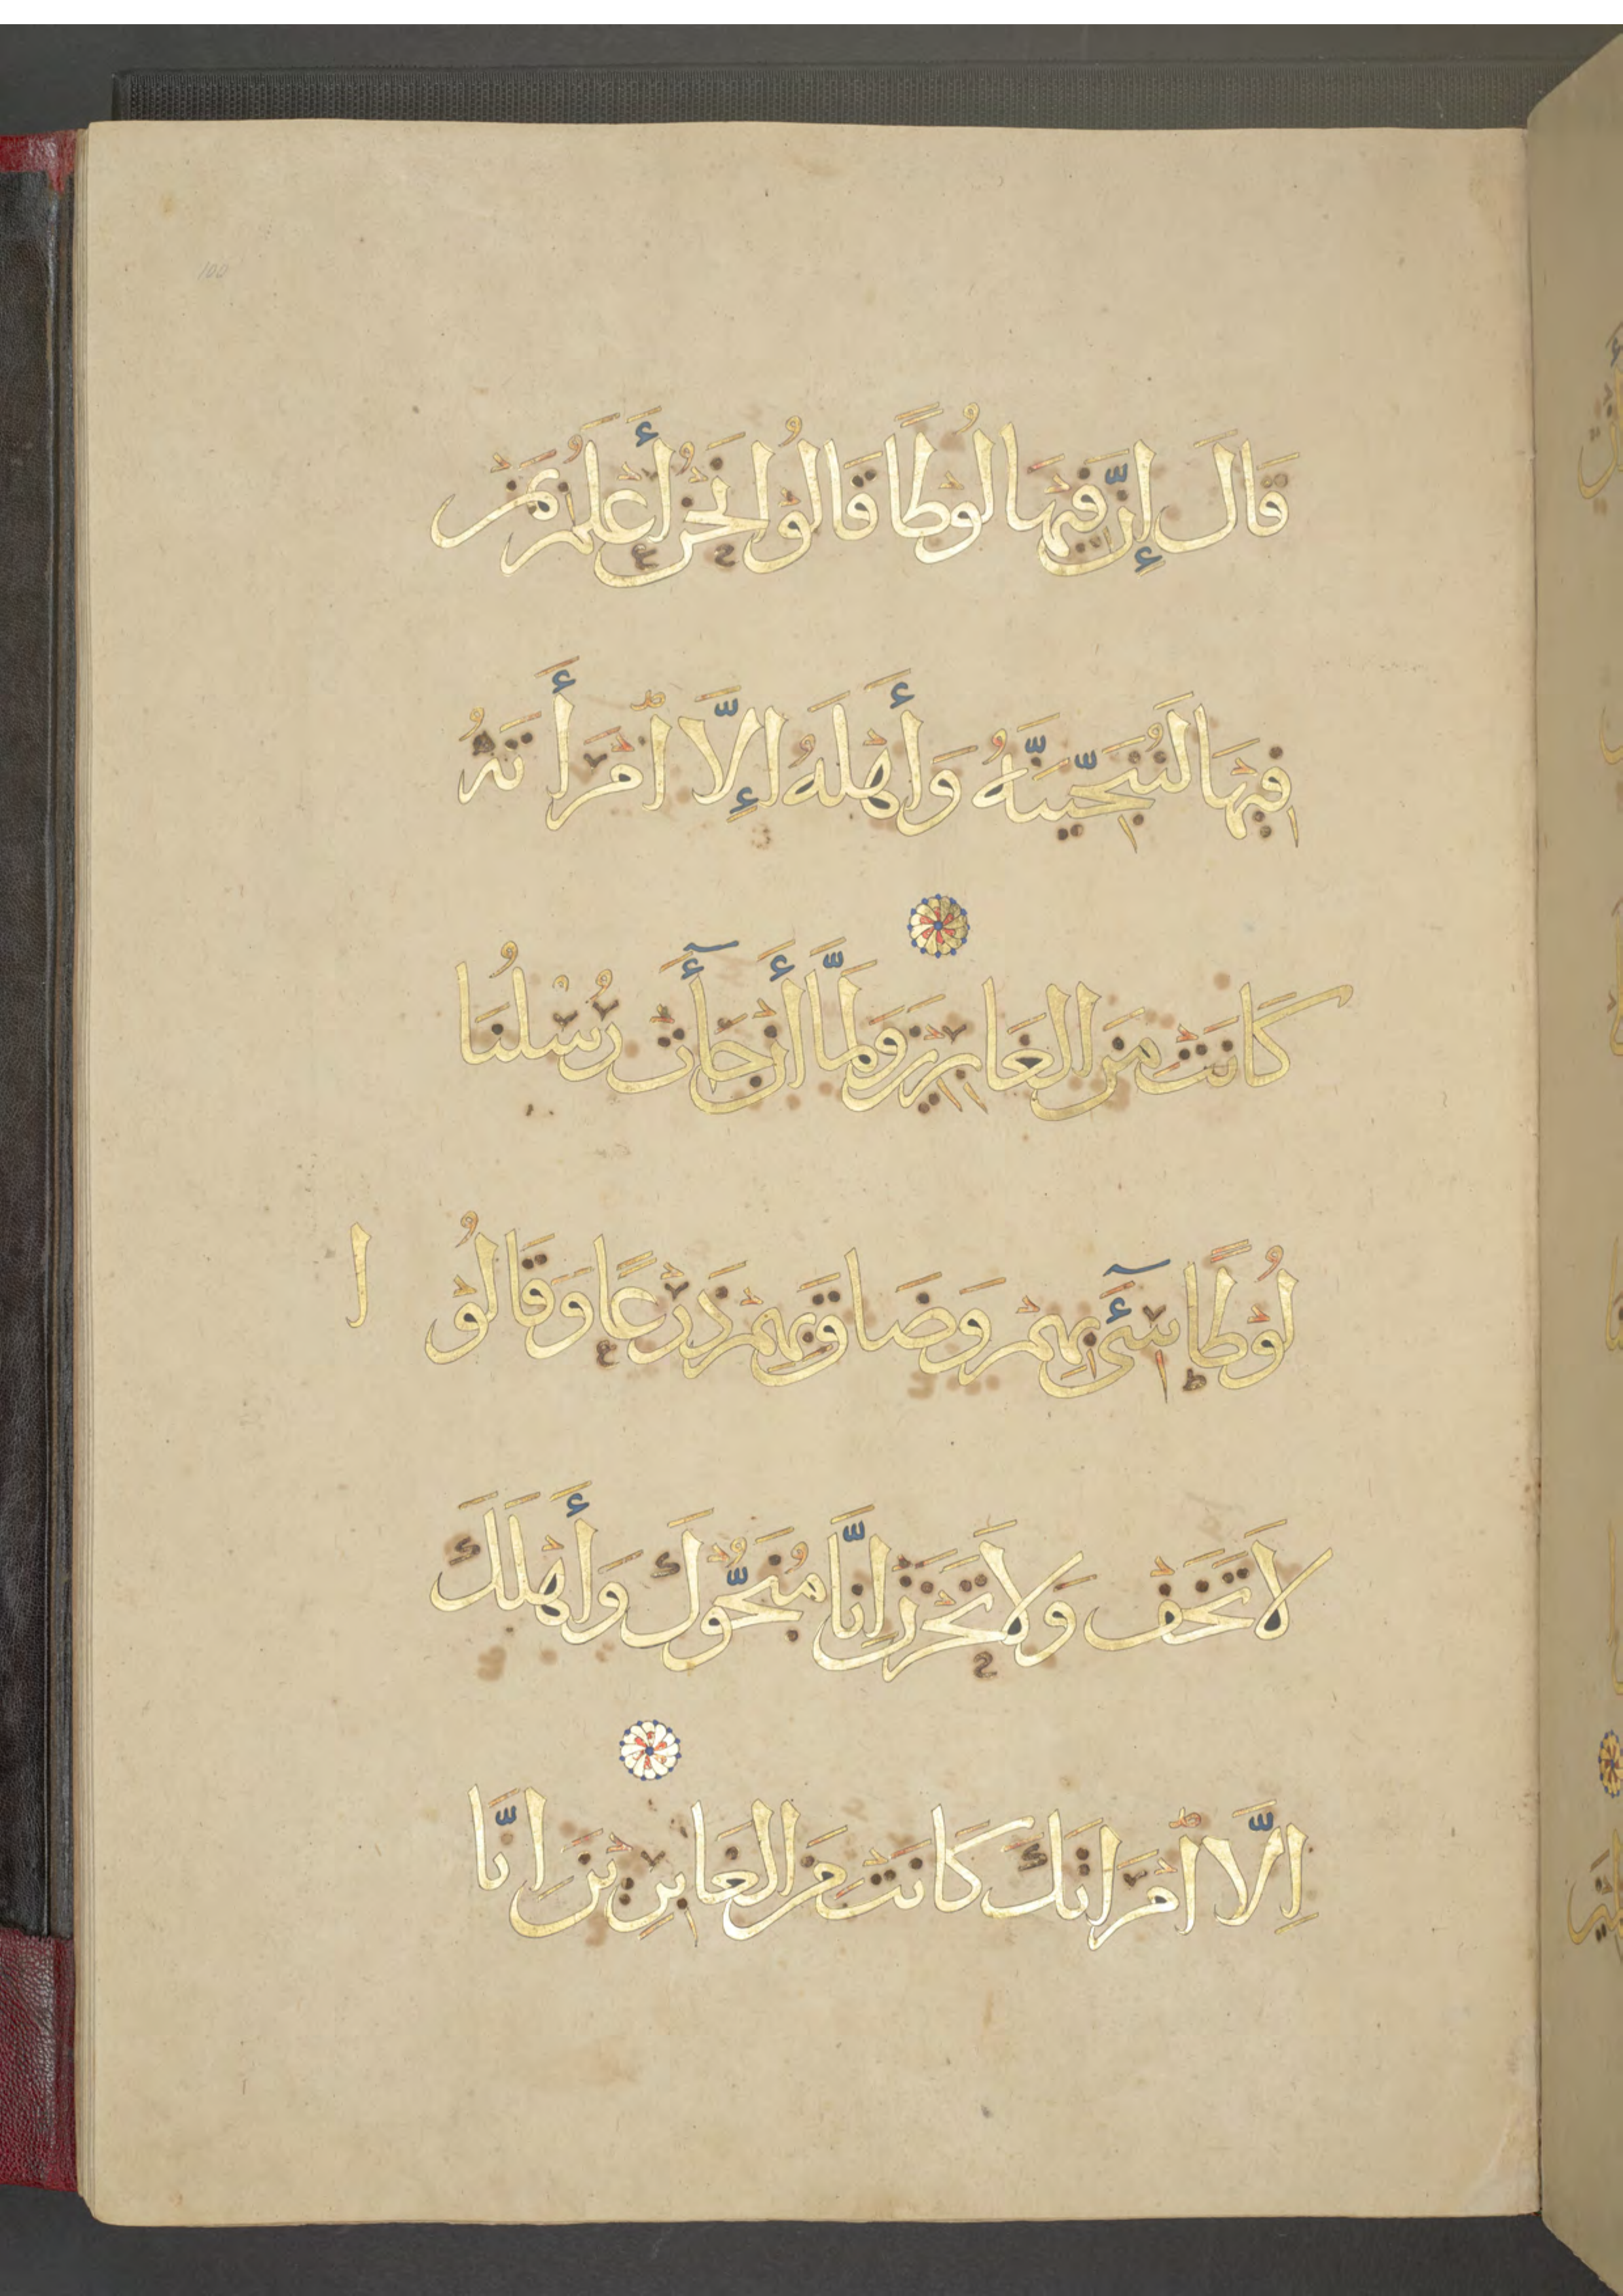 100
قَالَ إِنَّ فِيْهَا لُوْطًا قَالُوْا نَحْنُ أَعْلَمُ بِمَنْ
فِيْهَا لَنُنَجِّيَنَّهُ وَأَهْلَهُ إِلَّا امْرَأَتَهُ
كَانَتْ مِنَ الْغَابِرِيْنَ وَلَمَّا أَنْ جَآَتْ رُسُلُنَا
لُوْطًا سِيْٓءَ بِهِمْ وَضَاقَ بِهِمْ ذَرْعًا وَقَالُوْا
لَا تَخَفْ وَلَا تَحْزَنْ اِنَّا مُنَجُّوْكَ وَأَهْلَكَ
اِلَّا امْرَاتَكَ كَانَتْ مِنَ الْغَابِرِيْنَ اِنَّا